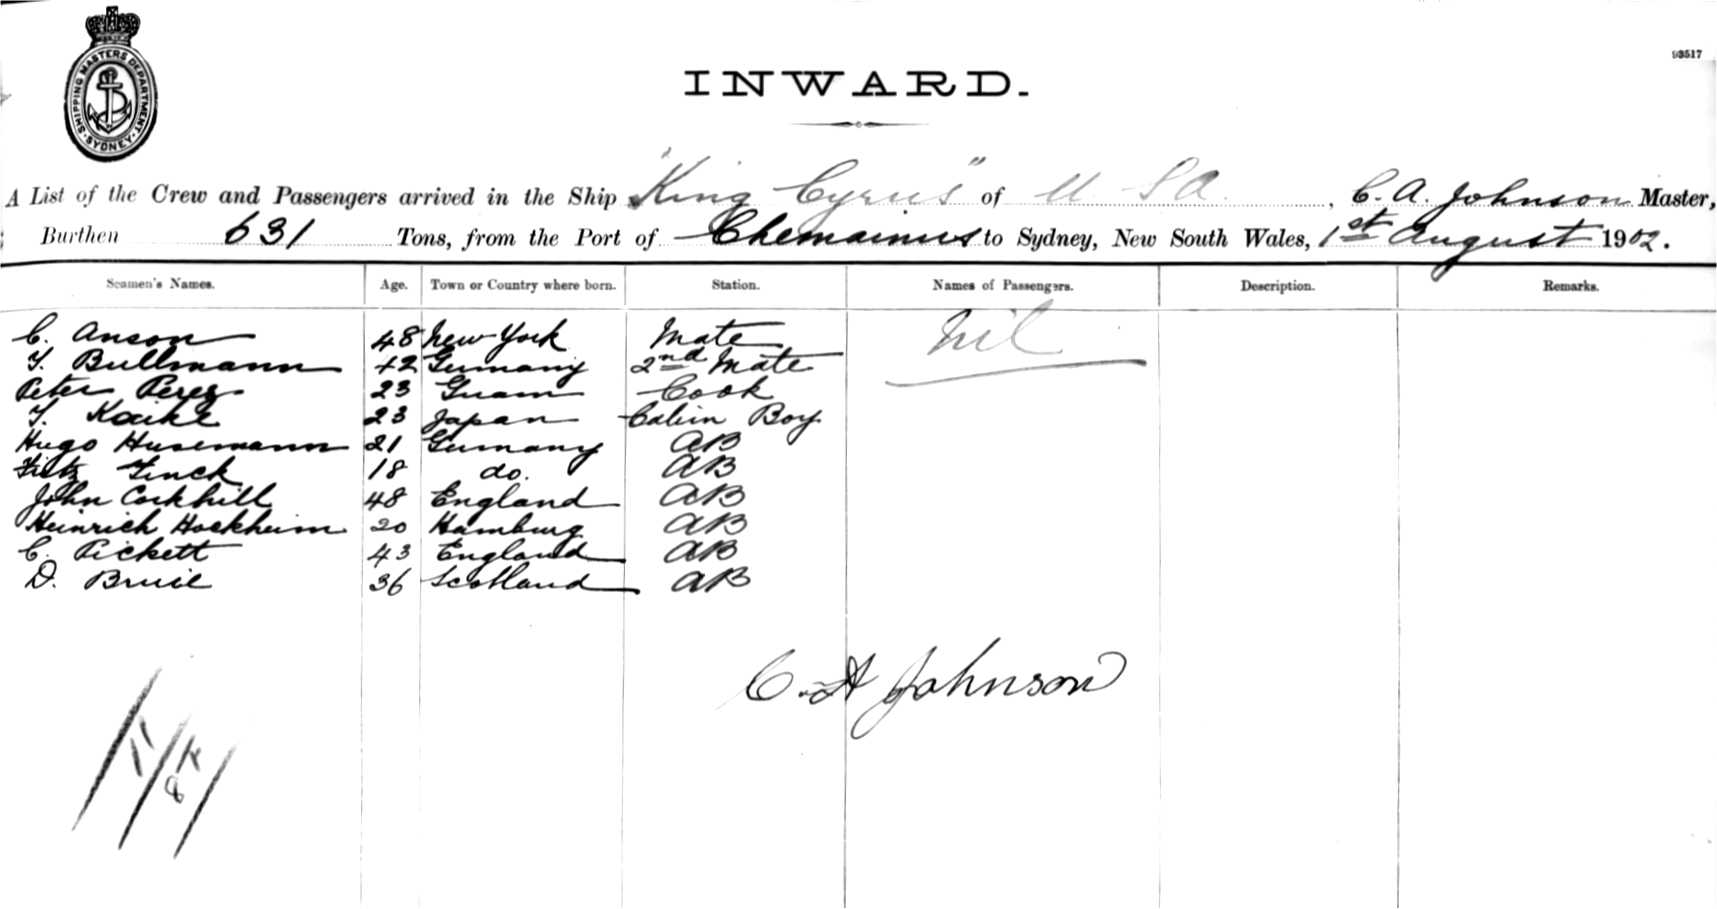 SHIPPING MASTERS DEPARTMENT. SYDNEY.
93517
INWARD.
A List of the Crew and Passengers arrived in the Ship "King Cyrus" of U. S A. , C. A. Johnson Master,
Burthen 631 Tons, from the Port of Chemainus to Sydney, New South Wales, 1st August 1902.
Seamen's Names. Age. Town or Country where born. Station. Names of Passengers. Description. Remarks.
C. Anson 48 New York Mate Nil
Bullmann 42 Germany 2nd Mate
Peter Perez 23 Guam Cook
Kaike 23 Japan Cabin Boy
Hugo Husemann 21 Germany AB
Fritz Finck 18 do. AB
John Corkhill 48 England AB
Heinrich Hockheim 20 Hamburg AB
C. Pickett 43 England AB
D. Bruce 36 Scotland AB
C. A Johnson